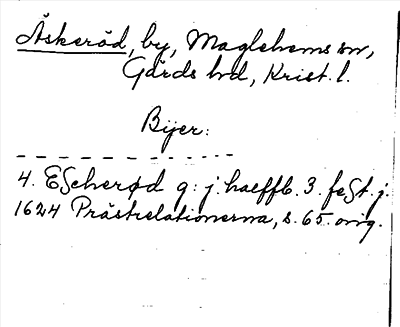 Åskeröd, by, Maglehems sn,
Gärds hd, Krist. l.
Byer:
4. Escherød g: j. haeffb. 3. fest. j.
1624 Prästrelationerna, s. 65. orig.